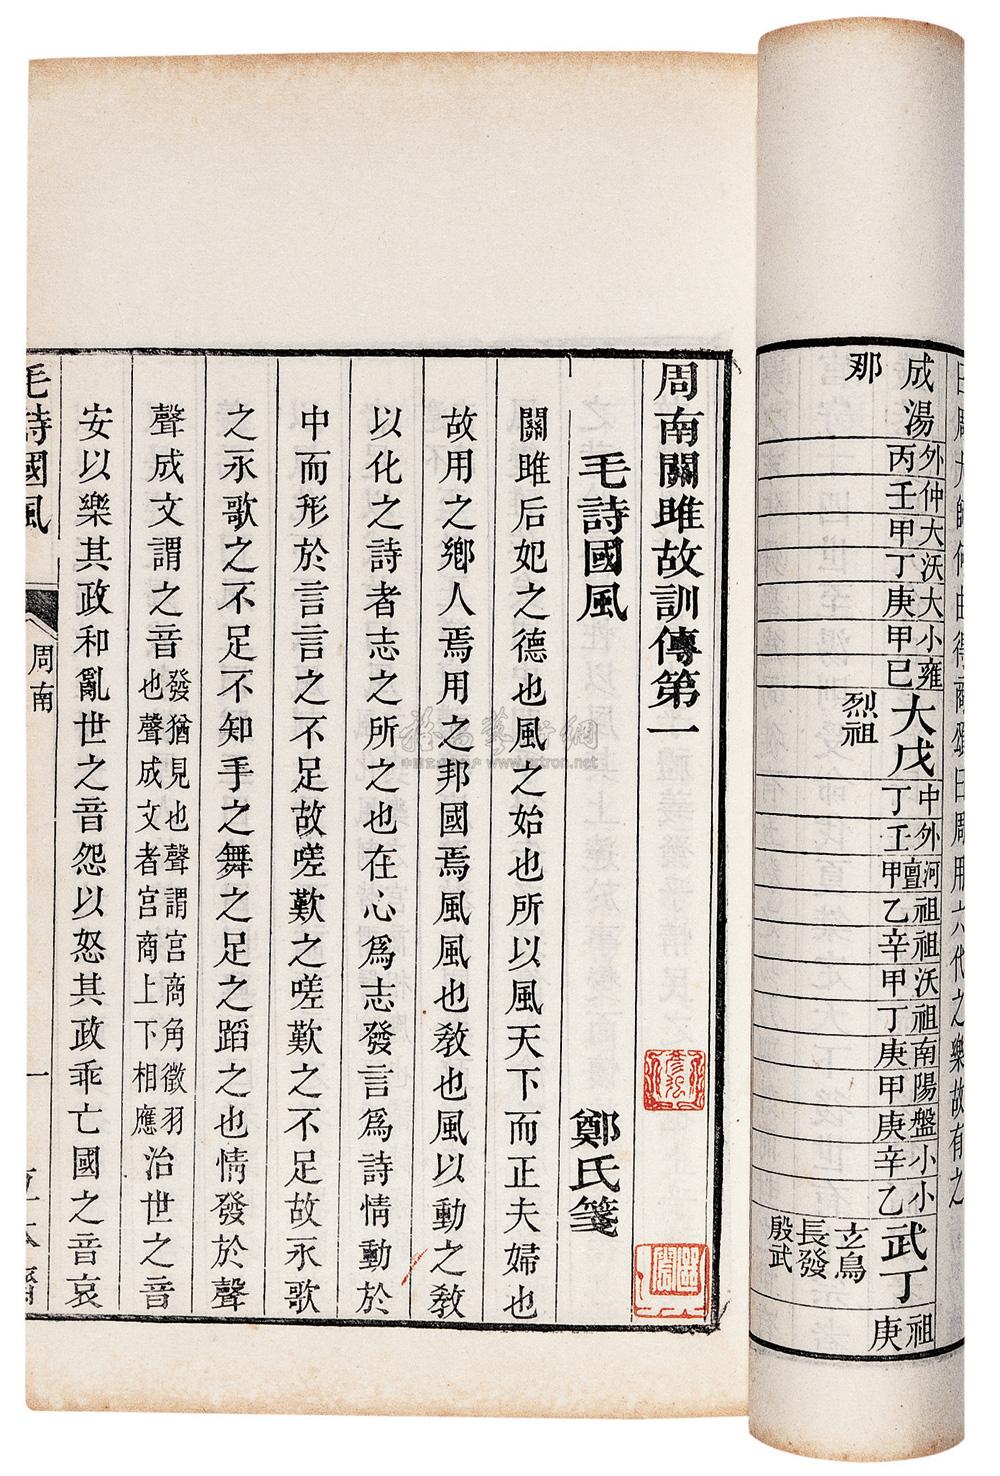 曰周大師何由得商頌曰周用六代之樂故有之
成湯
那
外丙
仲壬
大甲
沃丁
大庚
小甲
雍巳
大戊
烈祖
中丁
外壬
河亶甲
祖乙
祖辛
沃甲
祖丁
南庚
陽甲
盤庚
小辛
小乙
武丁
玄鳥
長發
殷武
祖庚
周南關雎故訓傳第一
毛詩國風 鄭氏箋
關雎后妃之德也風之始也所以風天下而正夫婦也
故用之鄉人焉用之邦國焉風風也敎也風以動之敎
以化之詩者志之所之也在心爲志發言爲詩情動於
中而形於言言之不足故嗟歎之嗟歎之不足故永歌
之永歌之不足不知手之舞之足之蹈之也情發於聲
聲成文謂之音 發猶見也聲謂宮商角徵羽也聲成文者宮商上下相應 治世之音
安以樂其政和亂世之音怨以怒其政乖亡國之音哀
毛詩國風 周南 一